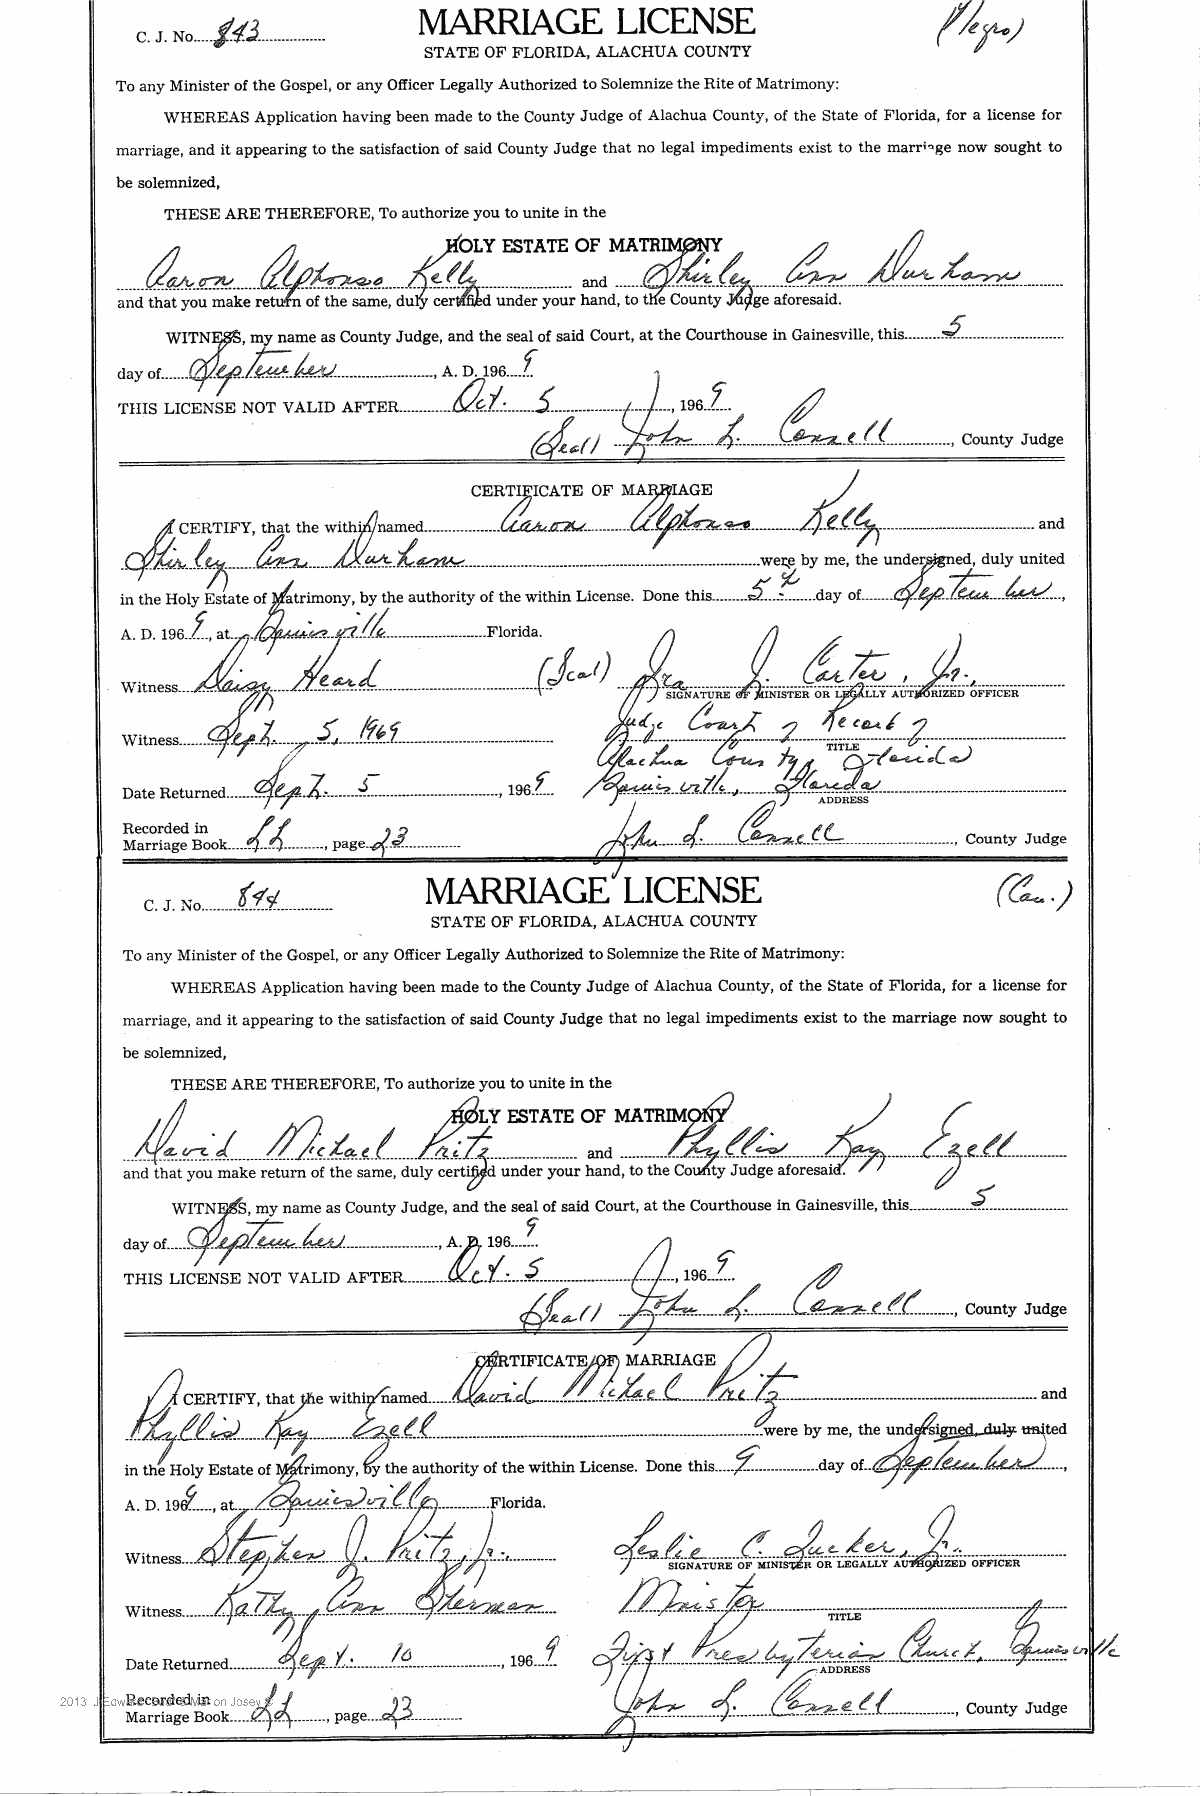 C. J. No. 843 MARRIAGE LICENSE (Negro)
STATE OF FLORIDA, ALACHUA COUNTY
To any Minister of the Gospel, or any Officer Legally Authorized to Solemnize the Rite of Matrimony:
WHEREAS Application having been made to the County Judge of Alachua County, of the State of Florida, for a license for
marriage, and it appearing to the satisfaction of said County Judge that no legal impediments exist to the marriage now sought to
be solemnized,
THESE ARE THEREFORE, To authorize you to unite in the
HOLY ESTATE OF MATRIMONY
Aaron Alphonso Kelly and Shirley Ann Durham
and that you make return of the same, duly certified under your hand, to the County Judge aforesaid.
WITNESS, my name as County Judge, and the seal of said Court, at the Courthouse in Gainesville, this 5
day of September, A. D. 1969.
THIS LICENSE NOT VALID AFTER Oct. 5, 1969
(Seal) John L. Connell, County Judge
CERTIFICATE OF MARRIAGE
I CERTIFY, that the within named Aaron Alphonso Kelly and
Shirley Ann Durham were by me, the undersigned, duly united
in the Holy Estate of Matrimony, by the authority of the within License. Done this 5th day of September,
A. D. 1969, at Gainesville Florida.
Witness Daisy Heard (Seal) Ira J. Carter, Jr.,
SIGNATURE OF MINISTER OR LEGALLY AUTHORIZED OFFICER
Witness Sept. 5, 1969 Judge Court of Record of
TITLE
Alachua County, Florida
Date Returned Sept. 5, 1969 Gainesville, Florida
ADDRESS
Recorded in
Marriage Book LL, page 23 John L. Connell, County Judge
C. J. No. 844 MARRIAGE LICENSE (Cau.)
STATE OF FLORIDA, ALACHUA COUNTY
To any Minister of the Gospel, or any Officer Legally Authorized to Solemnize the Rite of Matrimony:
WHEREAS Application having been made to the County Judge of Alachua County, of the State of Florida, for a license for
marriage, and it appearing to the satisfaction of said County Judge that no legal impediments exist to the marriage now sought to
be solemnized,
THESE ARE THEREFORE, To authorize you to unite in the
HOLY ESTATE OF MATRIMONY
David Michael Pritz and Phyllis Kay Ezell
and that you make return of the same, duly certified under your hand, to the County Judge aforesaid.
WITNESS, my name as County Judge, and the seal of said Court, at the Courthouse in Gainesville, this 5
day of September, A. D. 1969
THIS LICENSE NOT VALID AFTER Oct. 5, 1969
(Seal) John L. Connell, County Judge
CERTIFICATE OF MARRIAGE
I CERTIFY, that the within named David Michael Pritz and
Phyllis Kay Ezell were by me, the undersigned, duly united
in the Holy Estate of Matrimony, by the authority of the within License. Done this 9 day of September,
A. D. 1969, at Gainesville Florida.
Witness Stephen J. Pritz, Jr. Leslie C. Tucker, Jr.
SIGNATURE OF MINISTER OR LEGALLY AUTHORIZED OFFICER
Witness Kathy Ann Sherman Minister
TITLE
Date Returned Sept. 10, 1969 First Presbyterian Church, Gainesville
ADDRESS
Recorded in
Marriage Book LL, page 23 John L. Connell, County Judge
2013 on Josey